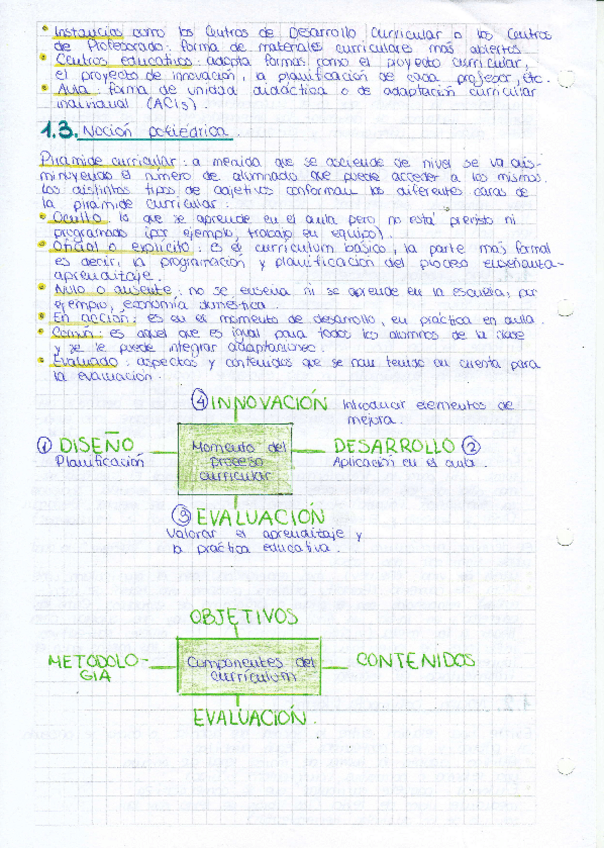 • Instancias como los Centros de Desarrollo Curricular o los Centros
de Profesorado: forma de materiales curriculares más abiertos.
• Centros educativos: adopta formas como el proyecto curricular,
el proyecto de innovación, la planificación de cada profesor, etc.
• Aula: forma de unidad didáctica o de adaptación curricular
individual (ACIs).
1.3. Noción poliédrica.
Pirámide curricular: a medida que se asciende de nivel se va dis-
minuyendo el número de alumnado que puede acceder a los mismos.
Los distintos tipos de objetivos conforman las diferentes caras de
la pirámide curricular:
• Oculto: lo que se aprende en el aula pero no está previsto ni
programado (por ejemplo, trabajo en equipo).
• Oficial o explícito: es el curriculum básico, la parte más formal
es decir, la programación y planificación del proceso enseñanza-
aprendizaje.
• Nulo o ausente: no se enseña ni se aprende en la escuela, por
ejemplo, economía doméstica.
• En acción: es en el momento de desarrollo, en práctica en aula.
• Común: es aquel que es igual para todos los alumnos de la clase
y se le puede integrar adaptaciones.
• Evaluado: aspectos y contenidos que se han tenido en cuenta para
la evaluación.
④ INNOVACIÓN Introducir elementos de
mejora.
① DISEÑO
Planificación
Momento del
proceso
curricular
DESARROLLO ②
Aplicación en el aula.
③ EVALUACIÓN
Valorar el aprendizaje y
la práctica educativa.
OBJETIVOS
METODOLO-
GÍA
Componentes del
currículum
CONTENIDOS
EVALUACIÓN.